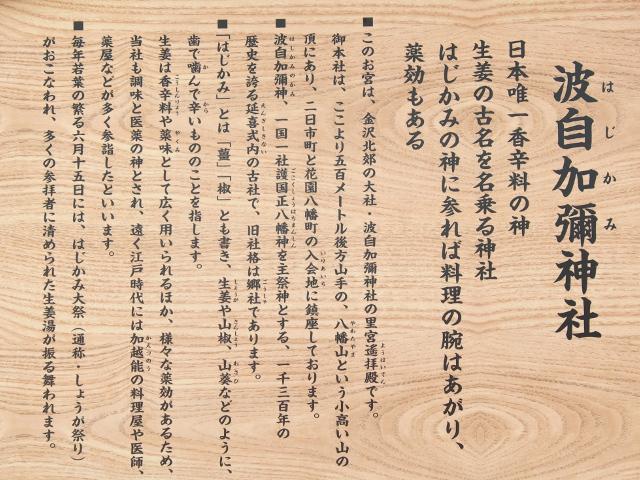 波自加彌神社
日本唯一香辛料の神
生姜の古名を名乗る神社
はじかみの神に参れば料理の腕はあがり、
薬効もある
■このお宮は、金沢北郊の大社・波自加彌神社の里宮遙拝殿です。
御本社は、ここより五百メートル後方山手の、八幡山という小高い山の
頂にあり、二日市町と花園八幡町の入会地に鎮座しております。
■波自加彌神、一国一社護国正八幡神を主祭神とする、一千三百年の
歴史を誇る延喜式内の古社で、旧社格は郷社であります。
■「はじかみ」とは「薑」「椒」とも書き、生姜や山椒、山葵などのように、
歯で噛んで辛いもののことを指します。
生姜は香辛料や薬味として広く用いられるほか、様々な薬効があるため、
当社も調味と医薬の神とされ、遠く江戸時代には加越能の料理屋や医師、
薬屋などが多く参詣したといいます。
■毎年若葉の繁る六月十五日には、はじかみ大祭（通称・しょうが祭り）
がおこなわれ、多くの参拝者に清められた生姜湯が振る舞われます。